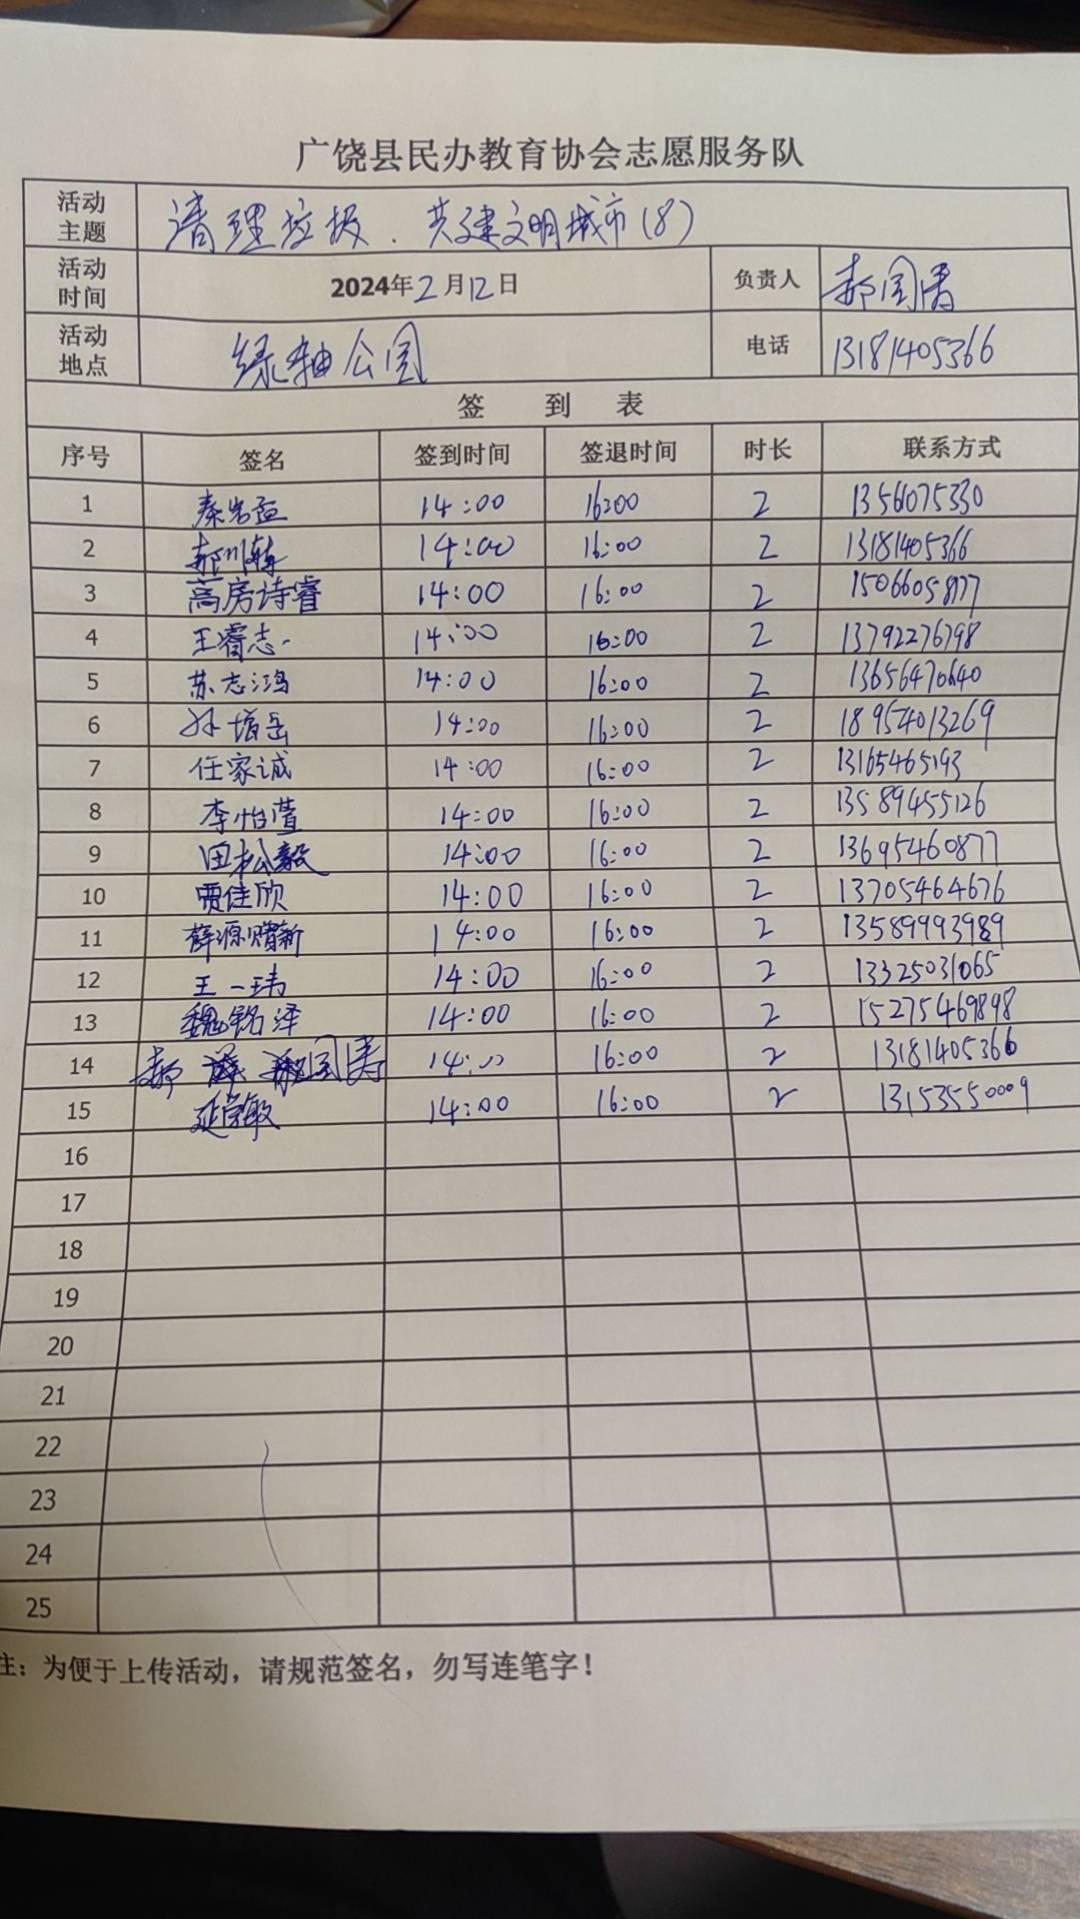 广饶县民办教育协会志愿服务队
活动主题 清理垃圾．共建文明城市(8)
活动时间 2024年2月12日 负责人 郝国涛
活动地点 绿轴公园 电话 13181405366
签 到 表
序号 签名 签到时间 签退时间 时长 联系方式
1 秦 14:00 16:00 2
2 郝 14:00 16:00 2 13181405366
3 高房诗睿 14:00 16:00 2
4 王睿志 14:00 16:00 2 13792276798
5 苏志鸿 14:00 16:00 2 13656470640
6 孙 岳 14:00 16:00 2 18954013269
7 任家诚 14:00 16:00 2 13165465193
8 李怡萱 14:00 16:00 2 13589455126
9 田松毅 14:00 16:00 2 13695460877
10 贾佳欣 14:00 16:00 2 13705464676
11 薛源 新 14:00 16:00 2 13589993989
12 王一玮 14:00 16:00 2 13325031065
13 魏铭泽 14:00 16:00 2 15275469898
14 郝 国涛 14:00 16:00 2 13181405366
15 延荣敏 14:00 16:00 2 13153550009
16
17
18
19
20
21
22
23
24
25
注：为便于上传活动，请规范签名，勿写连笔字！